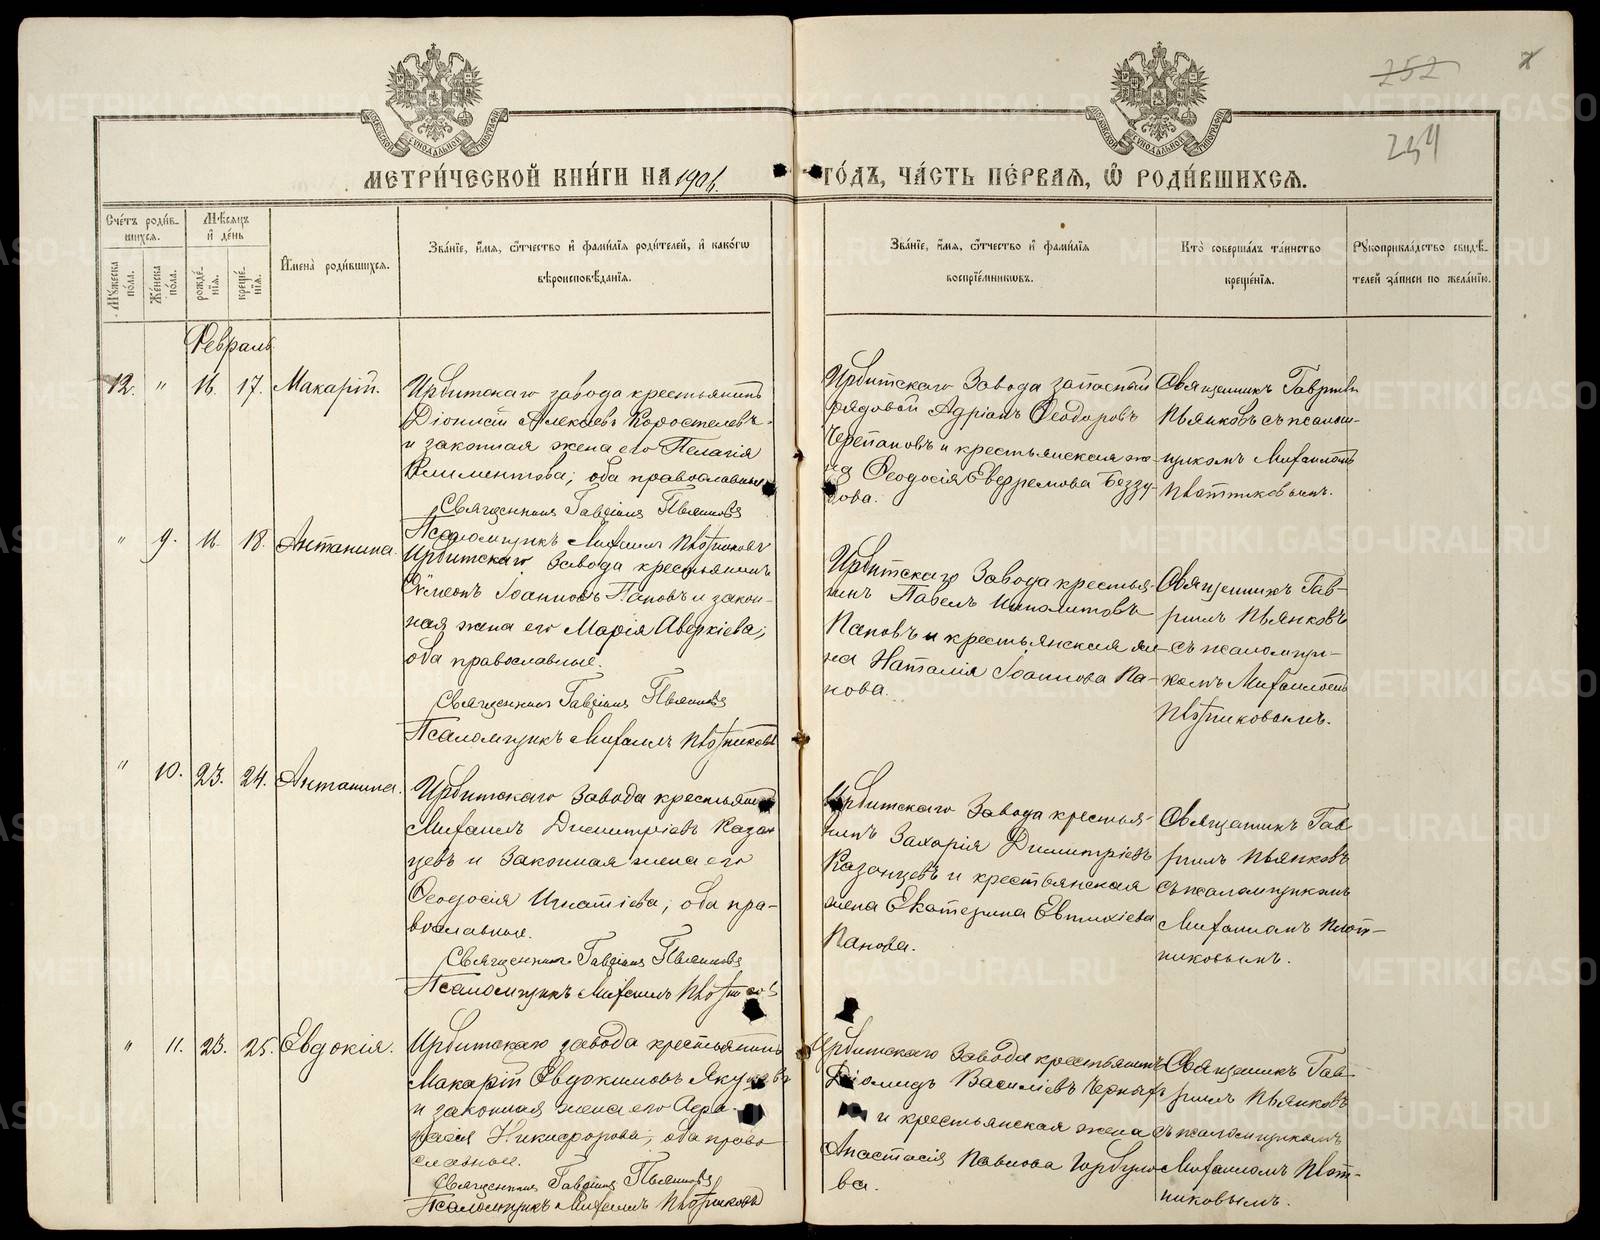 252
254
МЕТРИ́ЧЕСКОЙ КНИ́ГИ НА 1906.
ГО́ДЪ, ЧА́СТЬ ПЕ́РВАЯ, Ѡ РОДИ́ВШИХСЯ.
Сче́тъ роди́в-
шихся.
Му́жеска по́ла.
Же́нска по́ла.
Мѣ́сяцъ
и де́нь
рожде́нія.
креще́нія.
И́мена роди́вшихся.
Зва́ніе, и́мя, ѻ́тчество и фами́лія роди́телей, и како́гѡ
вѣроисповѣ́данія.
Зва́ніе, и́мя, ѻ́тчество и фами́лія
воспріе́мниковъ.
Кто̀ соверша́лъ та́инство
креще́нія.
Рꙋкоприкла́дство свидѣ́-
телей за́писи по жела́нію.
Февраль
12. " 16. 17. Макарій.
Ирбитскаго завода крестьянинъ
Діонисій Алексѣевъ Коростелевъ
и законная жена его Пелагія
Климентова; оба православные
Священникъ Гавріилъ Пьянковъ
Псаломщикъ Михаилъ Плотниковъ
Ирбитскаго Завода запасный
рядовой Адріанъ Ѳеодоровъ
Черепановъ и крестьянская же-
на Ѳеодосія Евфремова Беззу-
бова.
Священникъ Гавріилъ
Пьянковъ съ псалом-
щикомъ Михаиломъ
Плотниковымъ.
" 9. 11. 18. Антанина.
Ирбитскаго Завода крестьянинъ
Сѵмеонъ Іоанновъ Пановъ и закон-
ная жена его Марія Аверкіева;
оба православные.
Священникъ Гавріилъ Пьянковъ
Псаломщикъ Михаилъ Плотниковъ
Ирбитскаго Завода крестья-
нинъ Павелъ Ипполитовъ
Пановъ и крестьянская же-
на Наталія Іоаннова Па-
нова.
Священникъ Гав-
ріилъ Пьянковъ
съ псаломщи-
комъ Михаиломъ
Плотниковымъ.
" 10. 23. 24. Антанина.
Ирбитскаго Завода крестьянинъ
Михаилъ Димитріевъ Казан-
цевъ и Законная жена его
Ѳеодосія Игнатіева; оба пра-
вославные.
Священникъ Гавріилъ Пьянковъ
Псаломщикъ Михаилъ
Ирбитскаго Завода крестья-
нинъ Захарія Димитріевъ
Казанцевъ и крестьянская
жена Екатерина Евтихіева
Панова.
Священникъ Гав-
ріилъ Пьянковъ
съ псаломщикомъ
Михаиломъ Плот-
никовымъ.
" 11. 23. 25. Евдокія.
Ирбитскаго завода крестьянинъ
Макарій Евдокимовъ
и законная жена его
Никифорова; оба право-
славные.
Священникъ Гавріилъ Пьянковъ
Псаломщикъ Михаилъ Плотниковъ
Ирбитскаго Завода крестьянинъ
Діомидъ Василіевъ Черныхъ
и крестьянская жена
Анастасія Павлова Горбуно-
ва.
Священникъ Гав-
ріилъ Пьянковъ
съ псаломщикомъ
Михаиломъ Плот-
никовымъ.
METRIKI.GASO-URAL.RU